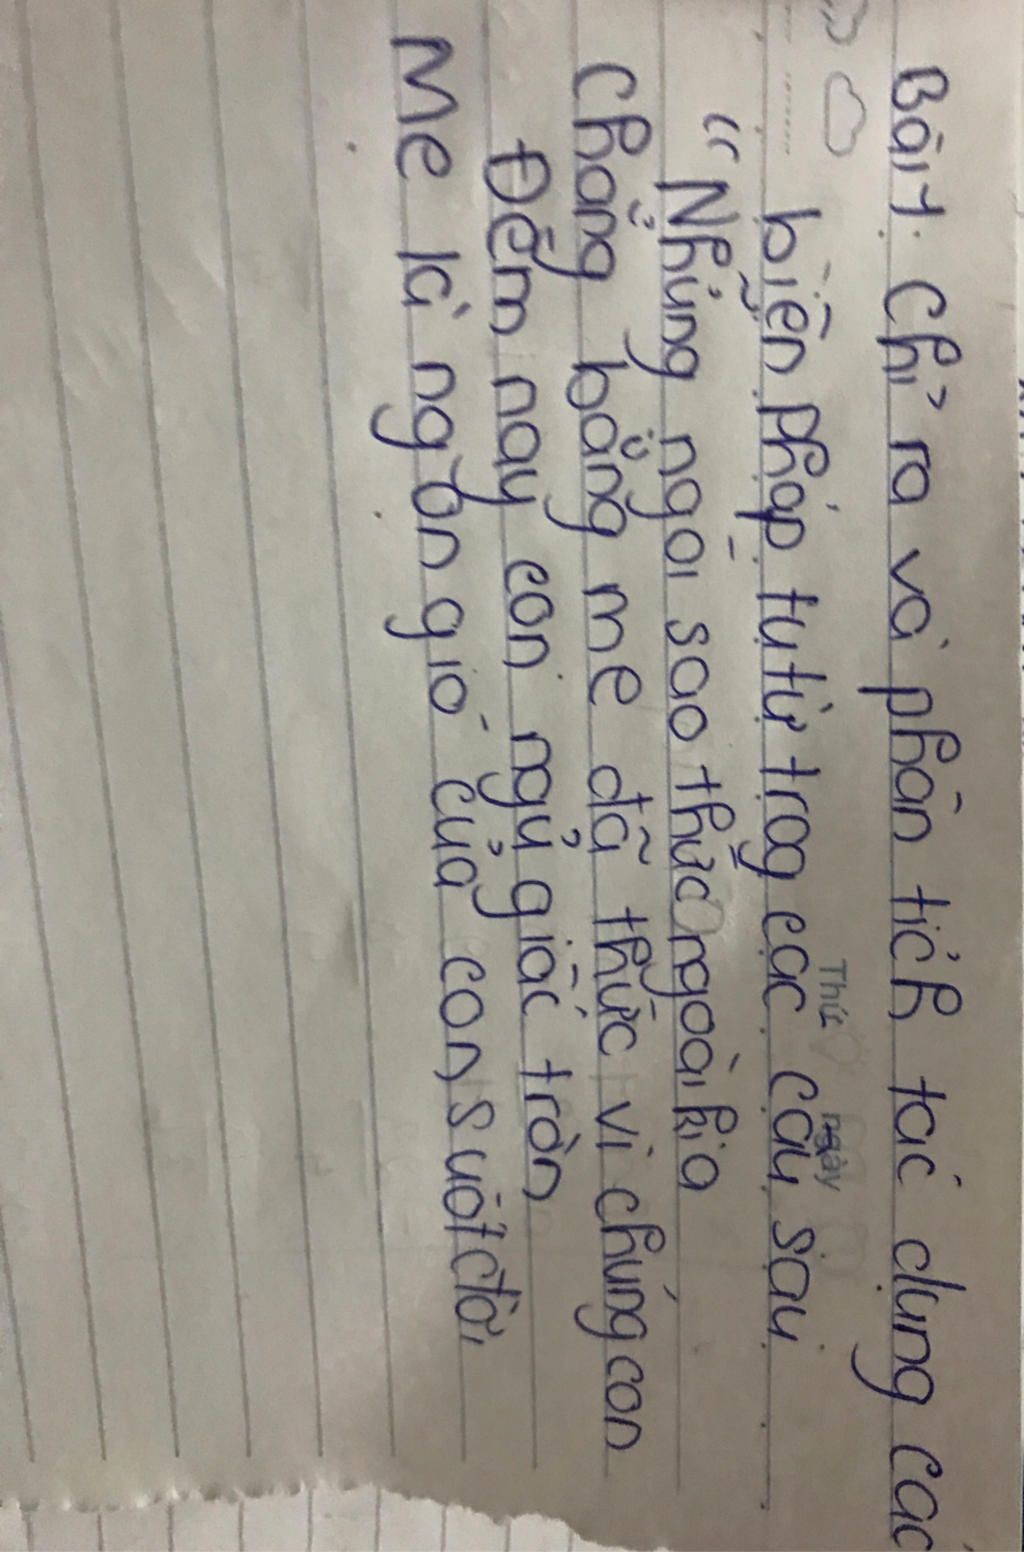 Bài 1: Chỉ ra và phân tích tác dụng các
biện pháp tu từ trog các câu sau
Thứ ngày
"Những ngôi sao thức ngoài kia
Chẳng bằng mẹ đã thức vì chúng con
Đêm nay con ngủ giấc tròn
Mẹ là ngọn gió của con suốt đời